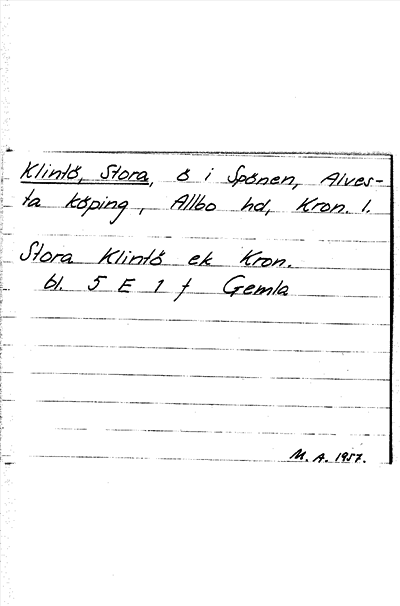 Klintö, Stora, ö i Spånen, Alves-
ta köping, Allbo hd, Kron. l.
Stora Klintö ek Kron.
bl. 5 E 1 f Gemla
M. A. 1957.